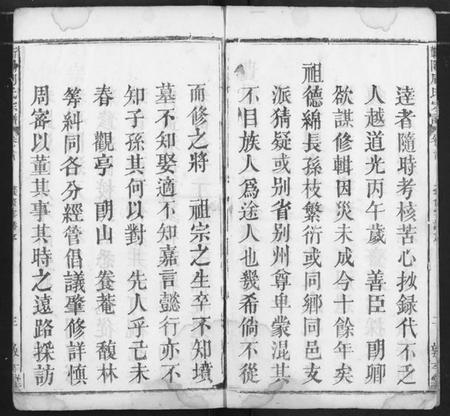 達者隨時考核苦心抄録代不乏
人越道光丙午歲　善臣　朗卿
欲謀修輯因災未成今十餘年矣
祖德綿長孫枝繁衍或同鄉同邑支
派猜疑或别省别州尊卑蒙混其
不目族人爲途人也幾希倘不從
而修之將　祖宗之生卒不知墳
墓不知娶適不知嘉言懿行亦不
知子孫其何以對　先人乎己未
春　觀亭　朗山　養菴從　馥林
等糾同各分經管倡議肇修詳慎
周密以董其事其時之遠路採訪